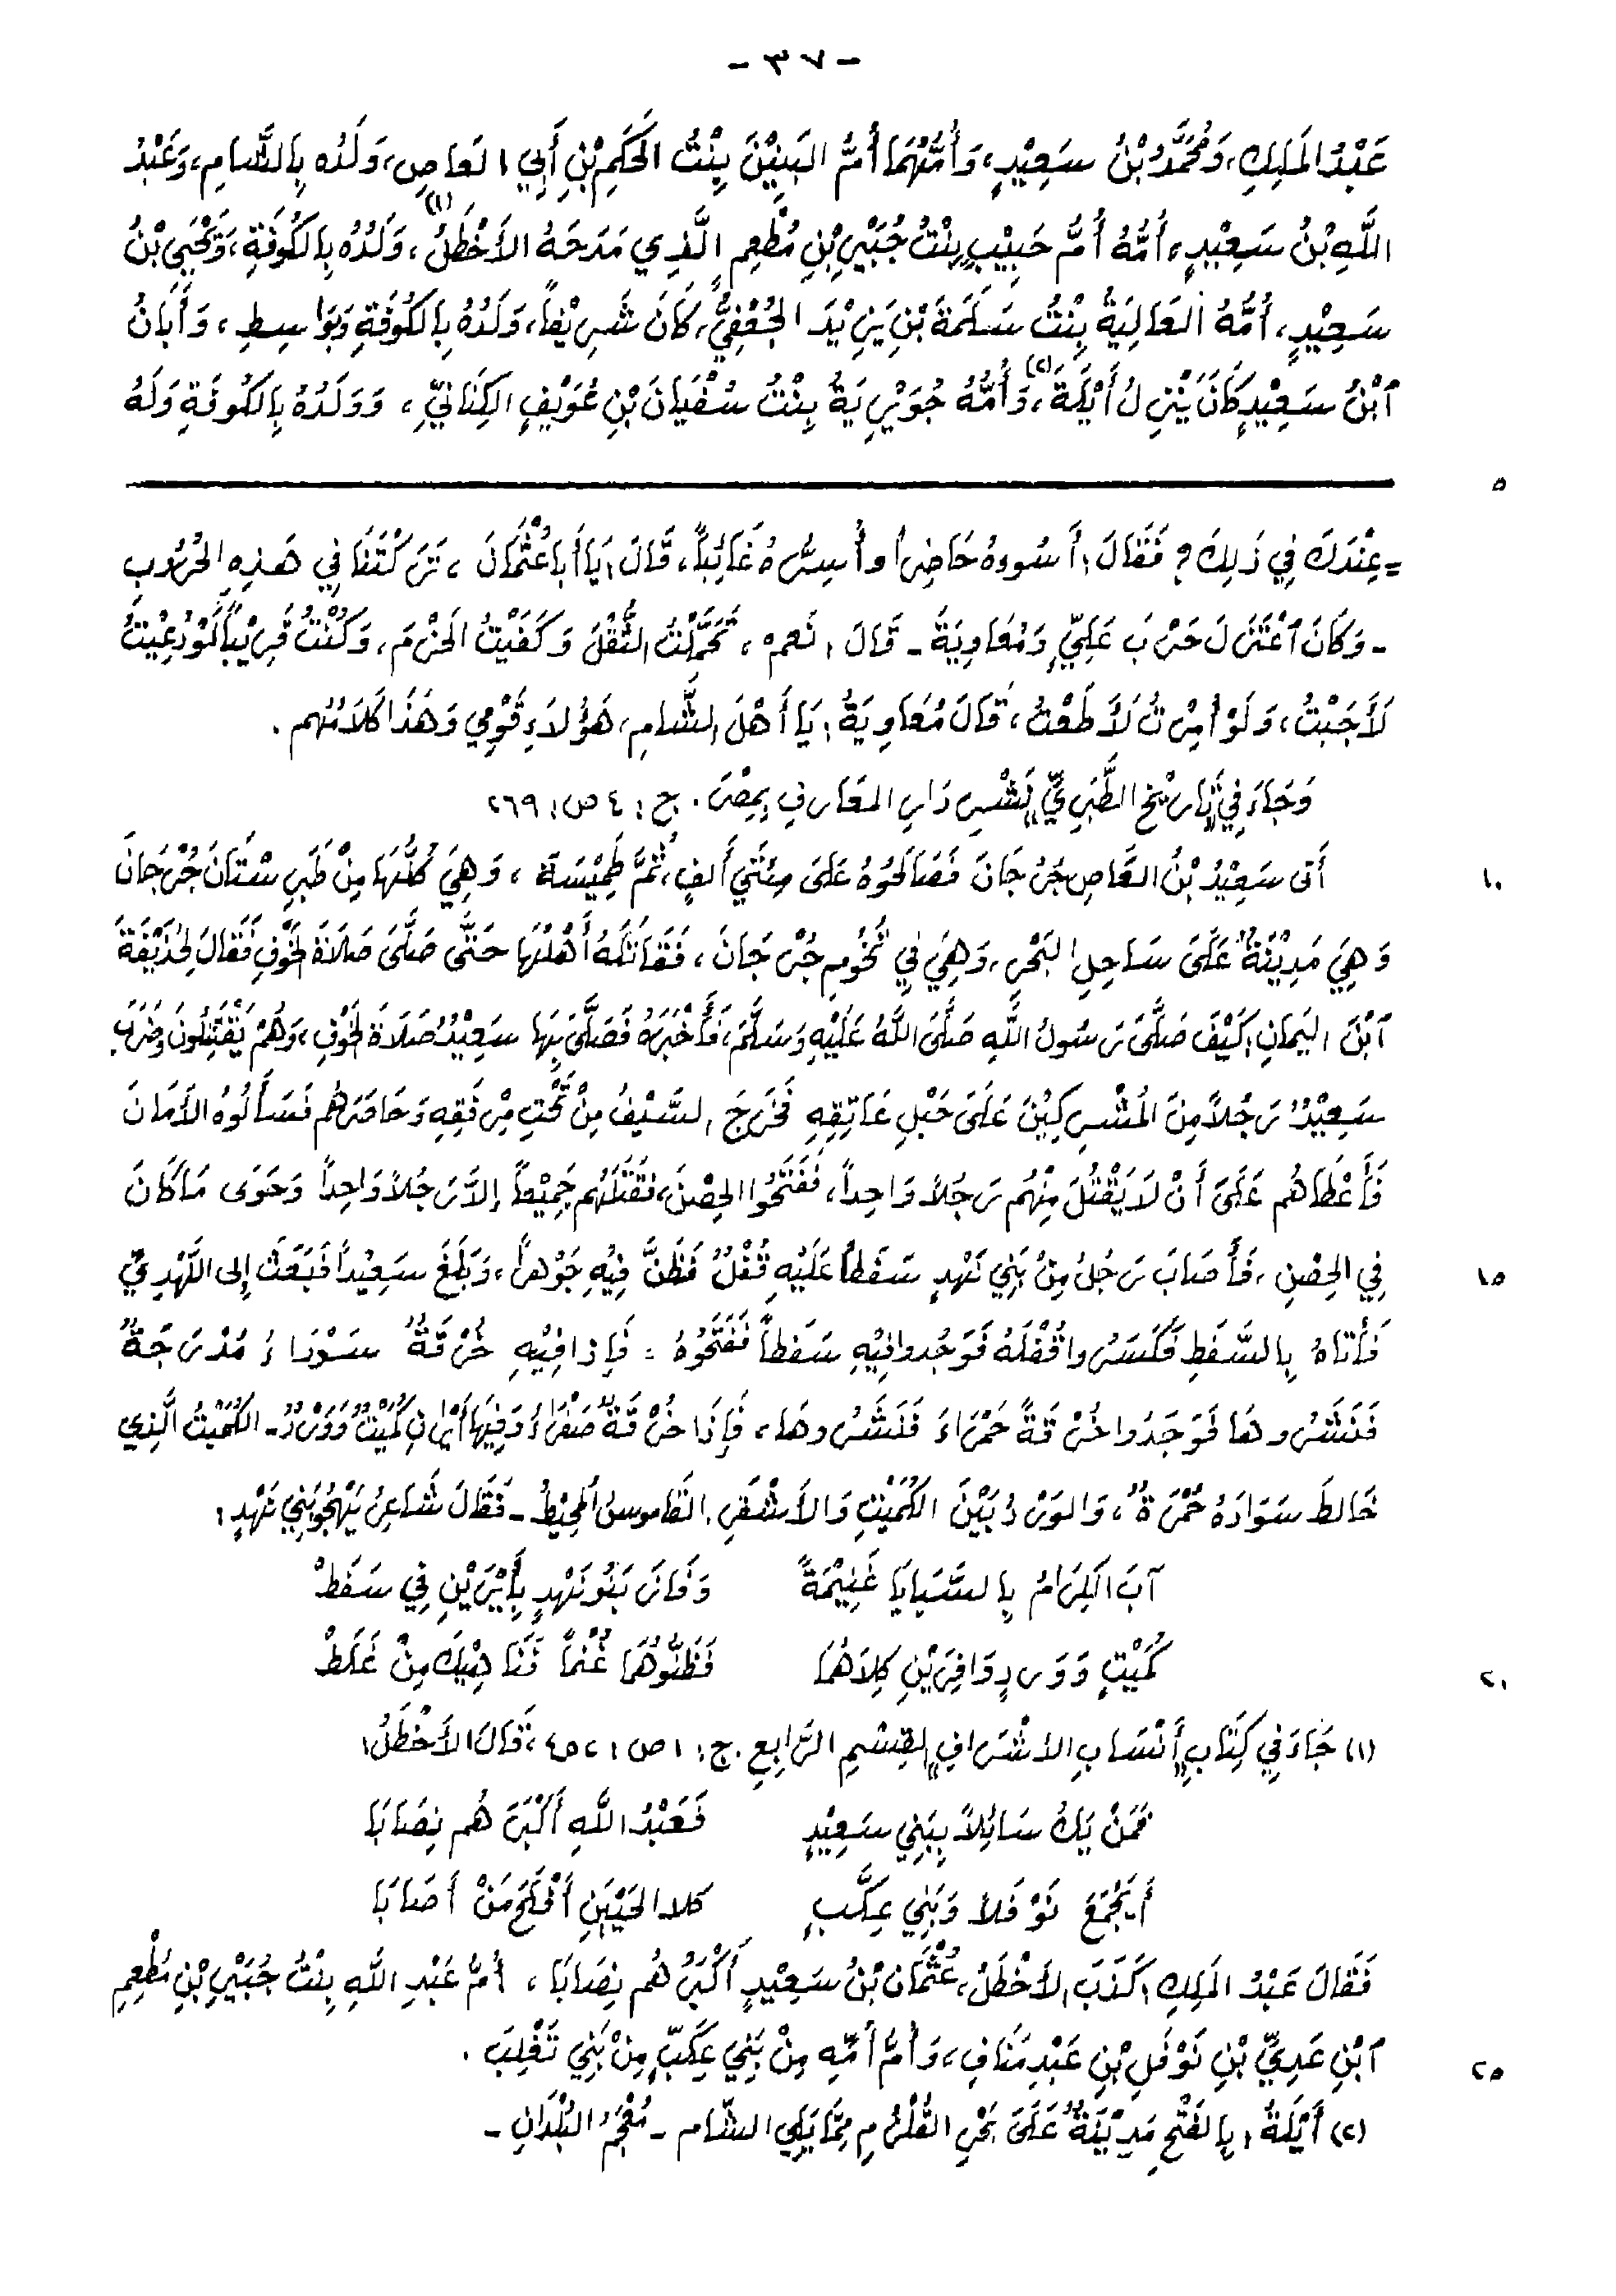 - ٣٧ -
عَبْدُ المَلِكِ، وَمُحَمَّدُ بْنُ سَعِيْدٍ، وَأُمُّهُمَا أُمُّ البَنِيْنَ بِنْتُ الحَكَمِ بْنِ أَبِي العَاصِ، وَلَدُه بِالشَّامِ، وَعَبْدُ
اللَّهِ بْنُ سَعِيْدٍ، أُمُّهُ أُمُّ حَبِيْبٍ بِنْتُ جُبَيْرِ بْنِ مُطْعِمٍ الَّذِي مَدَحَهُ الأَخْطَلُ(١)، وَلَدُهُ بِالكُوفَةِ، وَيَحْيَى بْنُ
سَعِيْدٍ، أُمُّهُ العَالِيَةُ بِنْتُ سَلَمَةَ بْنِ يَزِيْدَ الجُعْفِيِّ، كَانَ شَرِيْفاً، وَلَدُهُ بِالكُوفَةِ وَبِوَاسِطِ، وَأَبَانُ
ٱبْنُ سَعِيْدٍ كَانَ يَنْزِلُ أَيْلَةَ(٢)، وَأُمُّهُ جُوَيْرِيَةُ بِنْتُ سُفْيَانَ بْنِ عُوَيْفٍ الكِنَانِيِّ، وَوَلَدُهُ بِالكُوفَةِ وَلَهُ
٥
= عِنْدَكَ فِي ذَلِكَ؟ فَقَالَ: أَسُوءهُ حَاضِراً وأُسِرُّهُ غَائِباً، قَالَ: يَا أَبَا عُثْمَانَ، تَرَكْتَنَا فِي هَذِهِ الحُرُوبِ
- وَكَانَ ٱعْتَزَلَ حَرْبَ عَلِيٍّ وَمُعَاوِيَةَ - قَالَ: نَعم، تَحَمَّلْتُ الثِّقْلَ وَكَفَيْتُ الحَزْمَ، وَكُنْتُ قَرِيْباً لَوْ دُعِيْتُ
لَأَجَبْتُ، وَلَوْ أُمِرْتُ لَأَطَعْتُ، قَالَ مُعَاوِيَةُ: يَا أَهْلَ الشَّامِ، هَؤُلاَءِ قَوْمِي وَهَذَا كَلاَمُهم.
وَجَاءَ فِي "تَارِيْخِ الطَّبَرِيِّ" نَشْرِ دَارِ المَعَارِفِ بِمِصْرَ. ج: ٤ ص: ٢٦٩
١٠ أَتَى سَعِيْدُ بْنُ العَاصِ جُرْجَانَ فَصَالَحُوهُ عَلَى مِئَتَي أَلفٍ، ثُمَّ طَمِيْسَةَ، وَهِيَ كُلُّهَا مِنْ طَبَرِسْتَانَ جُرْجَانَ
وَهِيَ مَدِيْنَةٌ عَلَى سَاحِلِ البَحْرِ، وَهِيَ فِي تُخُومِ جُرْجَانَ، فَقَاتَلَهُ أَهْلُهَا حَتَّى صَلَّى صَلاَةَ الخَوْفِ فَقَالَ لِحُذَيْفَةَ
ٱبْنَ اليَمَانِ: كَيْفَ صَلَّى رَسُولُ اللَّهِ صَلَّى اللَّهُ عَلَيْهِ وَسَلَّمَ، فَأَخْبَرَهُ فَصَلَّى بِهَا سَعِيْدُ صَلاَةَ الخَوْفِ، وَهُمْ يَقْتَتِلُونَ وَضَرَبَ
سَعِيْدُ رَجُلاً مِنَ المُشْرِكِيْنَ عَلَى حَبْلِ عَاتِقِهِ فَخَرَجَ السَّيْفُ مِنْ تَحْتِ مِرْفَقِهِ وَحَاصَرَهُم فَسَأَلُوهُ الأَمَانَ
فَأَعْطَاهُم عَلَى أَنْ لاَ يَقْتُلَ مِنْهُم رَجُلاً وَاحِداً، فَفَتَحُوا الحِصْنَ، فَقَتَلَهُم جَمِيْعاً إلاَّ رَجُلاً وَاحِداً وَحَوَى مَا كَانَ
١٥ فِي الحِصْنِ، فَأَصَابَ رَجُلٌ مِنْ بَنِي نَهْدٍ سَفَطاً عَلَيْهِ قُفْلٌ فَظَنَّ فِيْهِ جَوْهراً، وَبَلَغَ سَعِيْداً فَبَعَثَ إِلى النَّهْدِيِّ
فَأَتَاهُ بِالسَّفَطِ فَكَسَرُوا قُفْلَهُ فَوَجُدوا فِيْهِ سَفَطاً فَفَتَحُوهُ: فَإِذا فِيْهِ خُرْقَةٌ سَوْدَاءُ مُدْرَجَةٌ
فَنَشَرُوهَا فَوَجَدُوا خُرْقَةً حَمْرَاءَ فَنَشَرُوهَا، فَإِذَا خُرْقَةٌ صَفْرَاءُ وَفِيْهَا أَيْرَانِ كُمَيْتٌ وَوَرْدٌ - الكُمَيْتُ الَّذِي
خَالطَ سَوَادَهُ حُمْرَةٌ، وَالوَرْدُ بَيْنَ الكُمَيْتِ وَالأَشْقَرِ. القَاموسُ المُحِيْطُ - فَقَالَ شَاعِرٌ يَهْجُو بَنِي نَهْدٍ:
آبَ الكِرَامُ بِالسَّبَايَا غَنِيْمَةً وَفَازَ بَنُو نَهْدٍ بِأَيْرَيْنِ فِي سَفَطْ
٢٠ كُمَيْتٍ وَوَرْدٍ وَافِرَيْنِ كِلاَهُمَا فَظَنُّوهُمَا غُنْماً فَنَاهِيْكَ مِنْ غَلَطْ
(١) جَاءَ فِي كِتَابِ "أَنْسَابِ الأشْرَافِ" القِسْمِ الرَّابِعِ. ج: ١ ص: ٤٥٢، قَالَ الأَخْطَلُ:
فَمَنْ يَكُ سَائِلاً بِبَنِي سَعِيْدٍ فَعَبْدُ اللَّهِ أَكْبَرَ هُم نِصَابَا
أَ يَجْمَعَ نَوْفَلاً وَبَنِي عِكَبٍّ كلا الحَيَّيْنِ أَفْلَحَ مَنْ أَصَابَا
فَقَالَ عَبْدُ المَلِكِ: كَذَبَ الأَخْطَلُ، عُثْمَان بْنُ سَعِيْدٍ أَكْبَرُ هُم نِصَابَا، أُمُّ عَبْدِ اللَّهِ بِنْتُ جُبَيْرِ بْنِ مُطْعِمِ
٢٥ ٱبْنِ عَدِيِّ بْنِ نَوْفَلِ بْنِ عَبْدِ مَنَافٍ، وَأُمُّ أُمِّهِ مِنْ بَنِي عِكَبٍّ مِنْ بَنِي تَغْلِبَ.
(٢) أَيْلَةُ: بِالفَتْحِ مَدِيْنَةٌ عَلَى بَحْرِ القُلْزُمِ مِمَّا يَلِي الشَّام - مُعْجَمُ البُلْدَانِ -